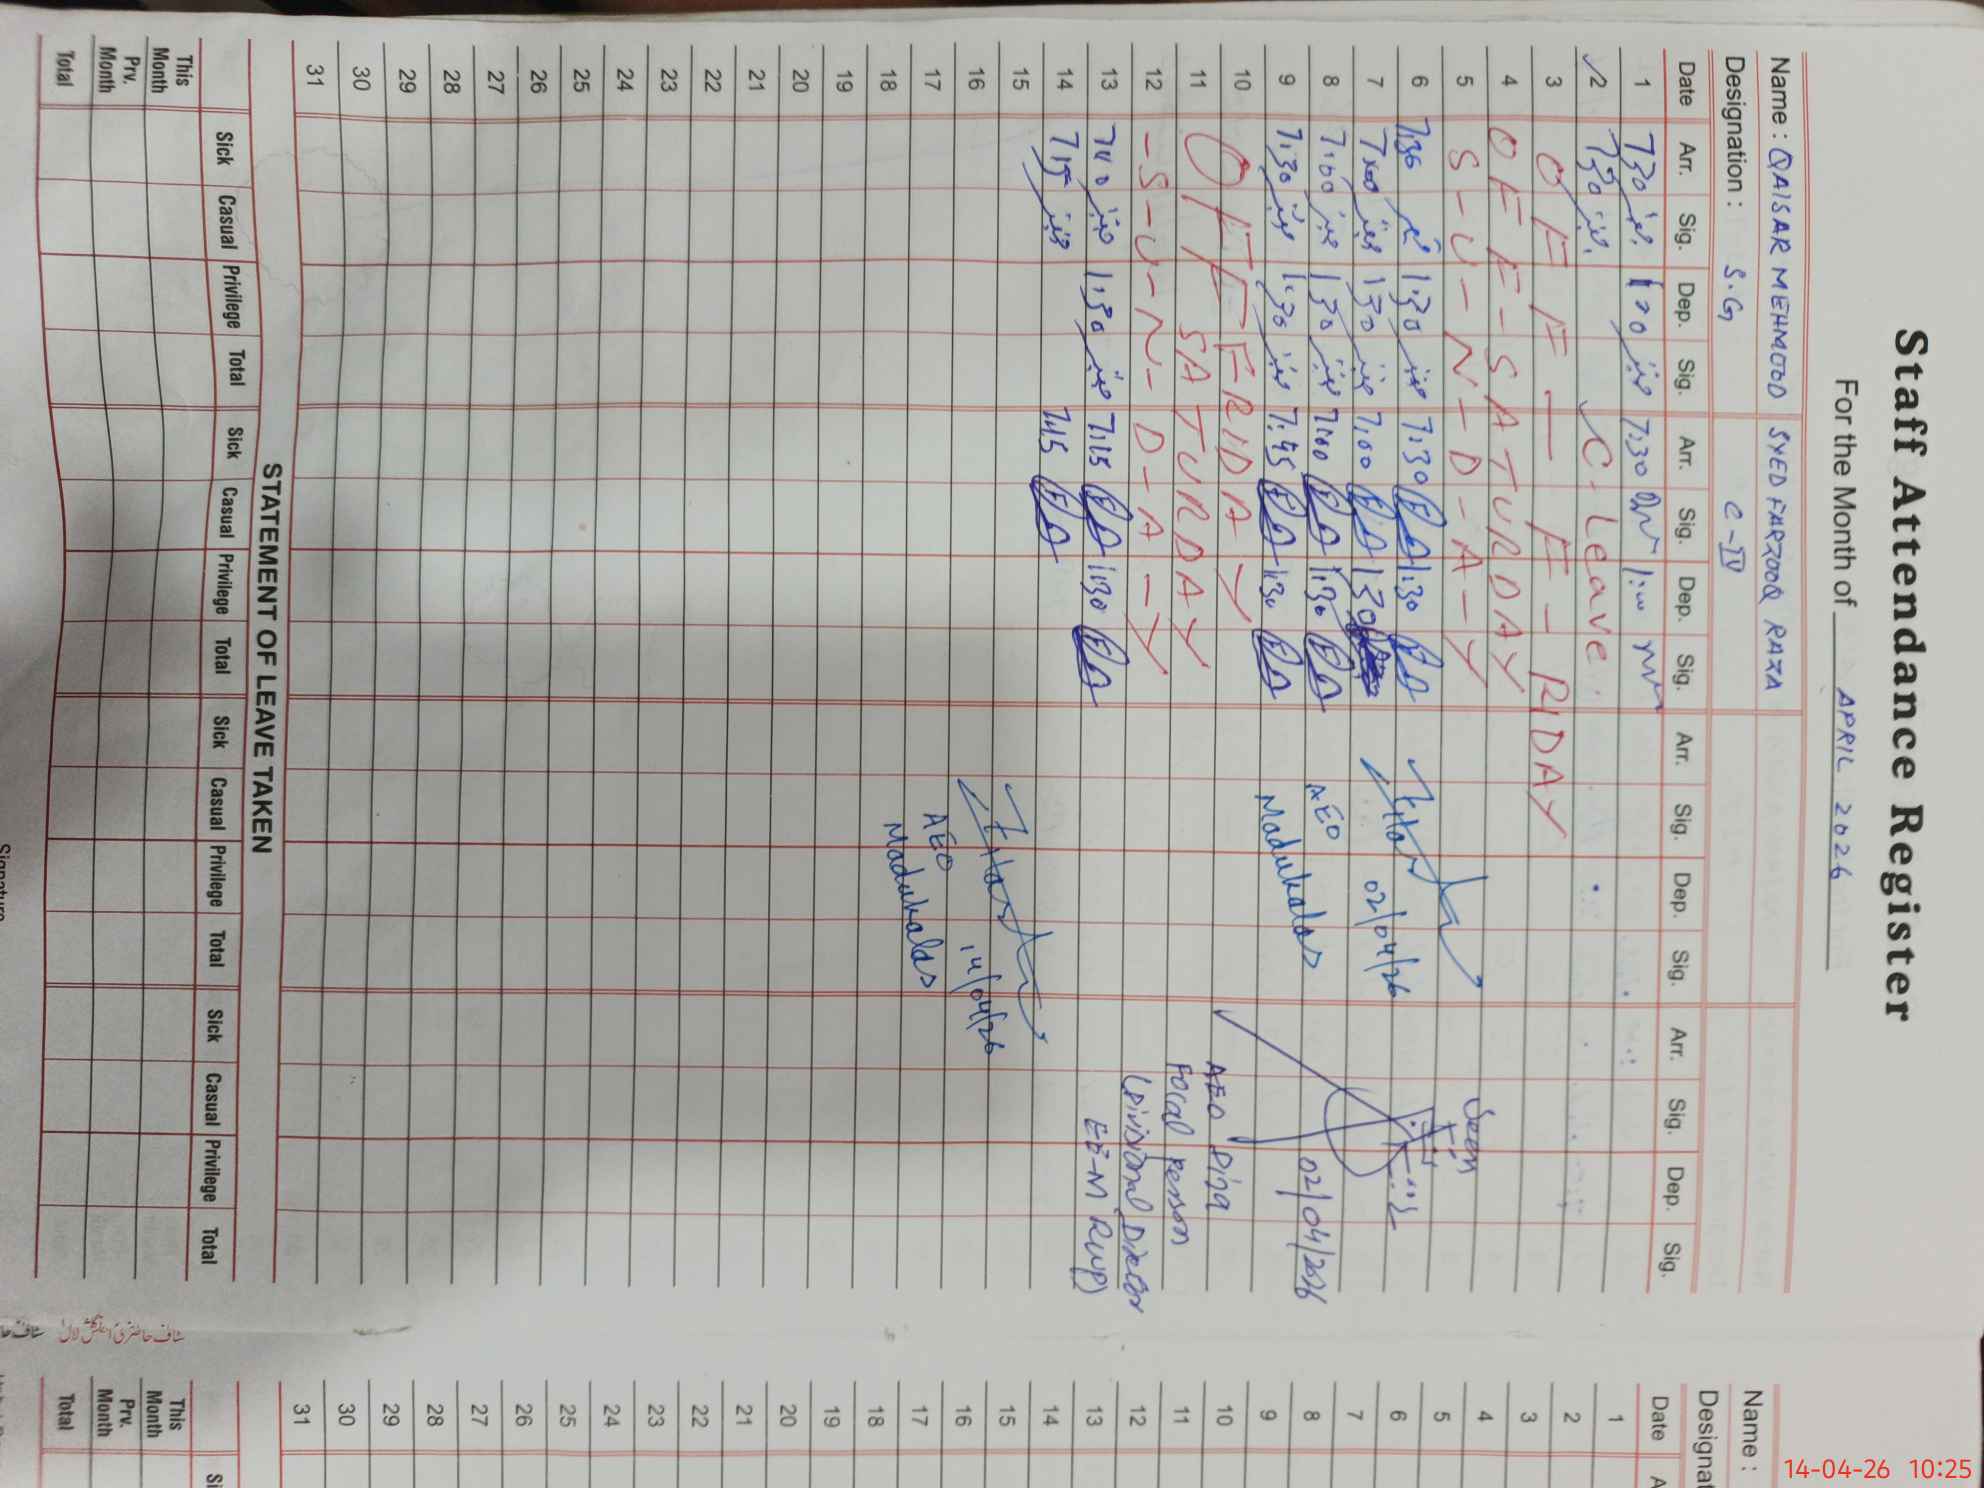 Staff Attendance Register
For the Month of APRIL 2026
Name : QAISAR MEHMOOD SYED FARZOOQ RAZA
Designation : S.G C-IV
Date Arr. Sig. Dep. Sig. Arr. Sig. Dep. Sig. Arr. Sig. Dep. Sig. Arr. Sig. Dep. Sig.
1 7:30 1:00 7:30 1:00
2 7:30 C. Leave
3 OFF - FRIDAY
4 OFF - SATURDAY
5 S-U-N-D-A-Y
6 7:30 1:30 7:30 1:30
7 7:00 1:30 7:00 1:30
8 7:00 1:30 7:00 1:30
9 7:30 1:30 7:45 1:30
10 OFF FRIDAY
11 SATURDAY
12 -S-U-N-D-A-Y
13 1:30 7:15 1:30
14 7:15 7:15
15
16
17
18
19
20
21
22
23
24
25
26
27
28
29
30
31
02/04/26
AEO
Madukalas
Seen
02/04/2026
AEO
Focal Person
(Divisional Director
EE-M RWP)
14/04/26
AEO
Madukalas
STATEMENT OF LEAVE TAKEN
Sick Casual Privilege Total Sick Casual Privilege Total Sick Casual Privilege Total Sick Casual Privilege Total
This Month
Prv. Month
Total
Signature
Name :
Designat
Date A
1
2
3
4
5
6
7
8
9
10
11
12
13
14
15
16
17
18
19
20
21
22
23
24
25
26
27
28
29
30
31
Si
This Month
Prv. Month
Total
14-04-26 10:25